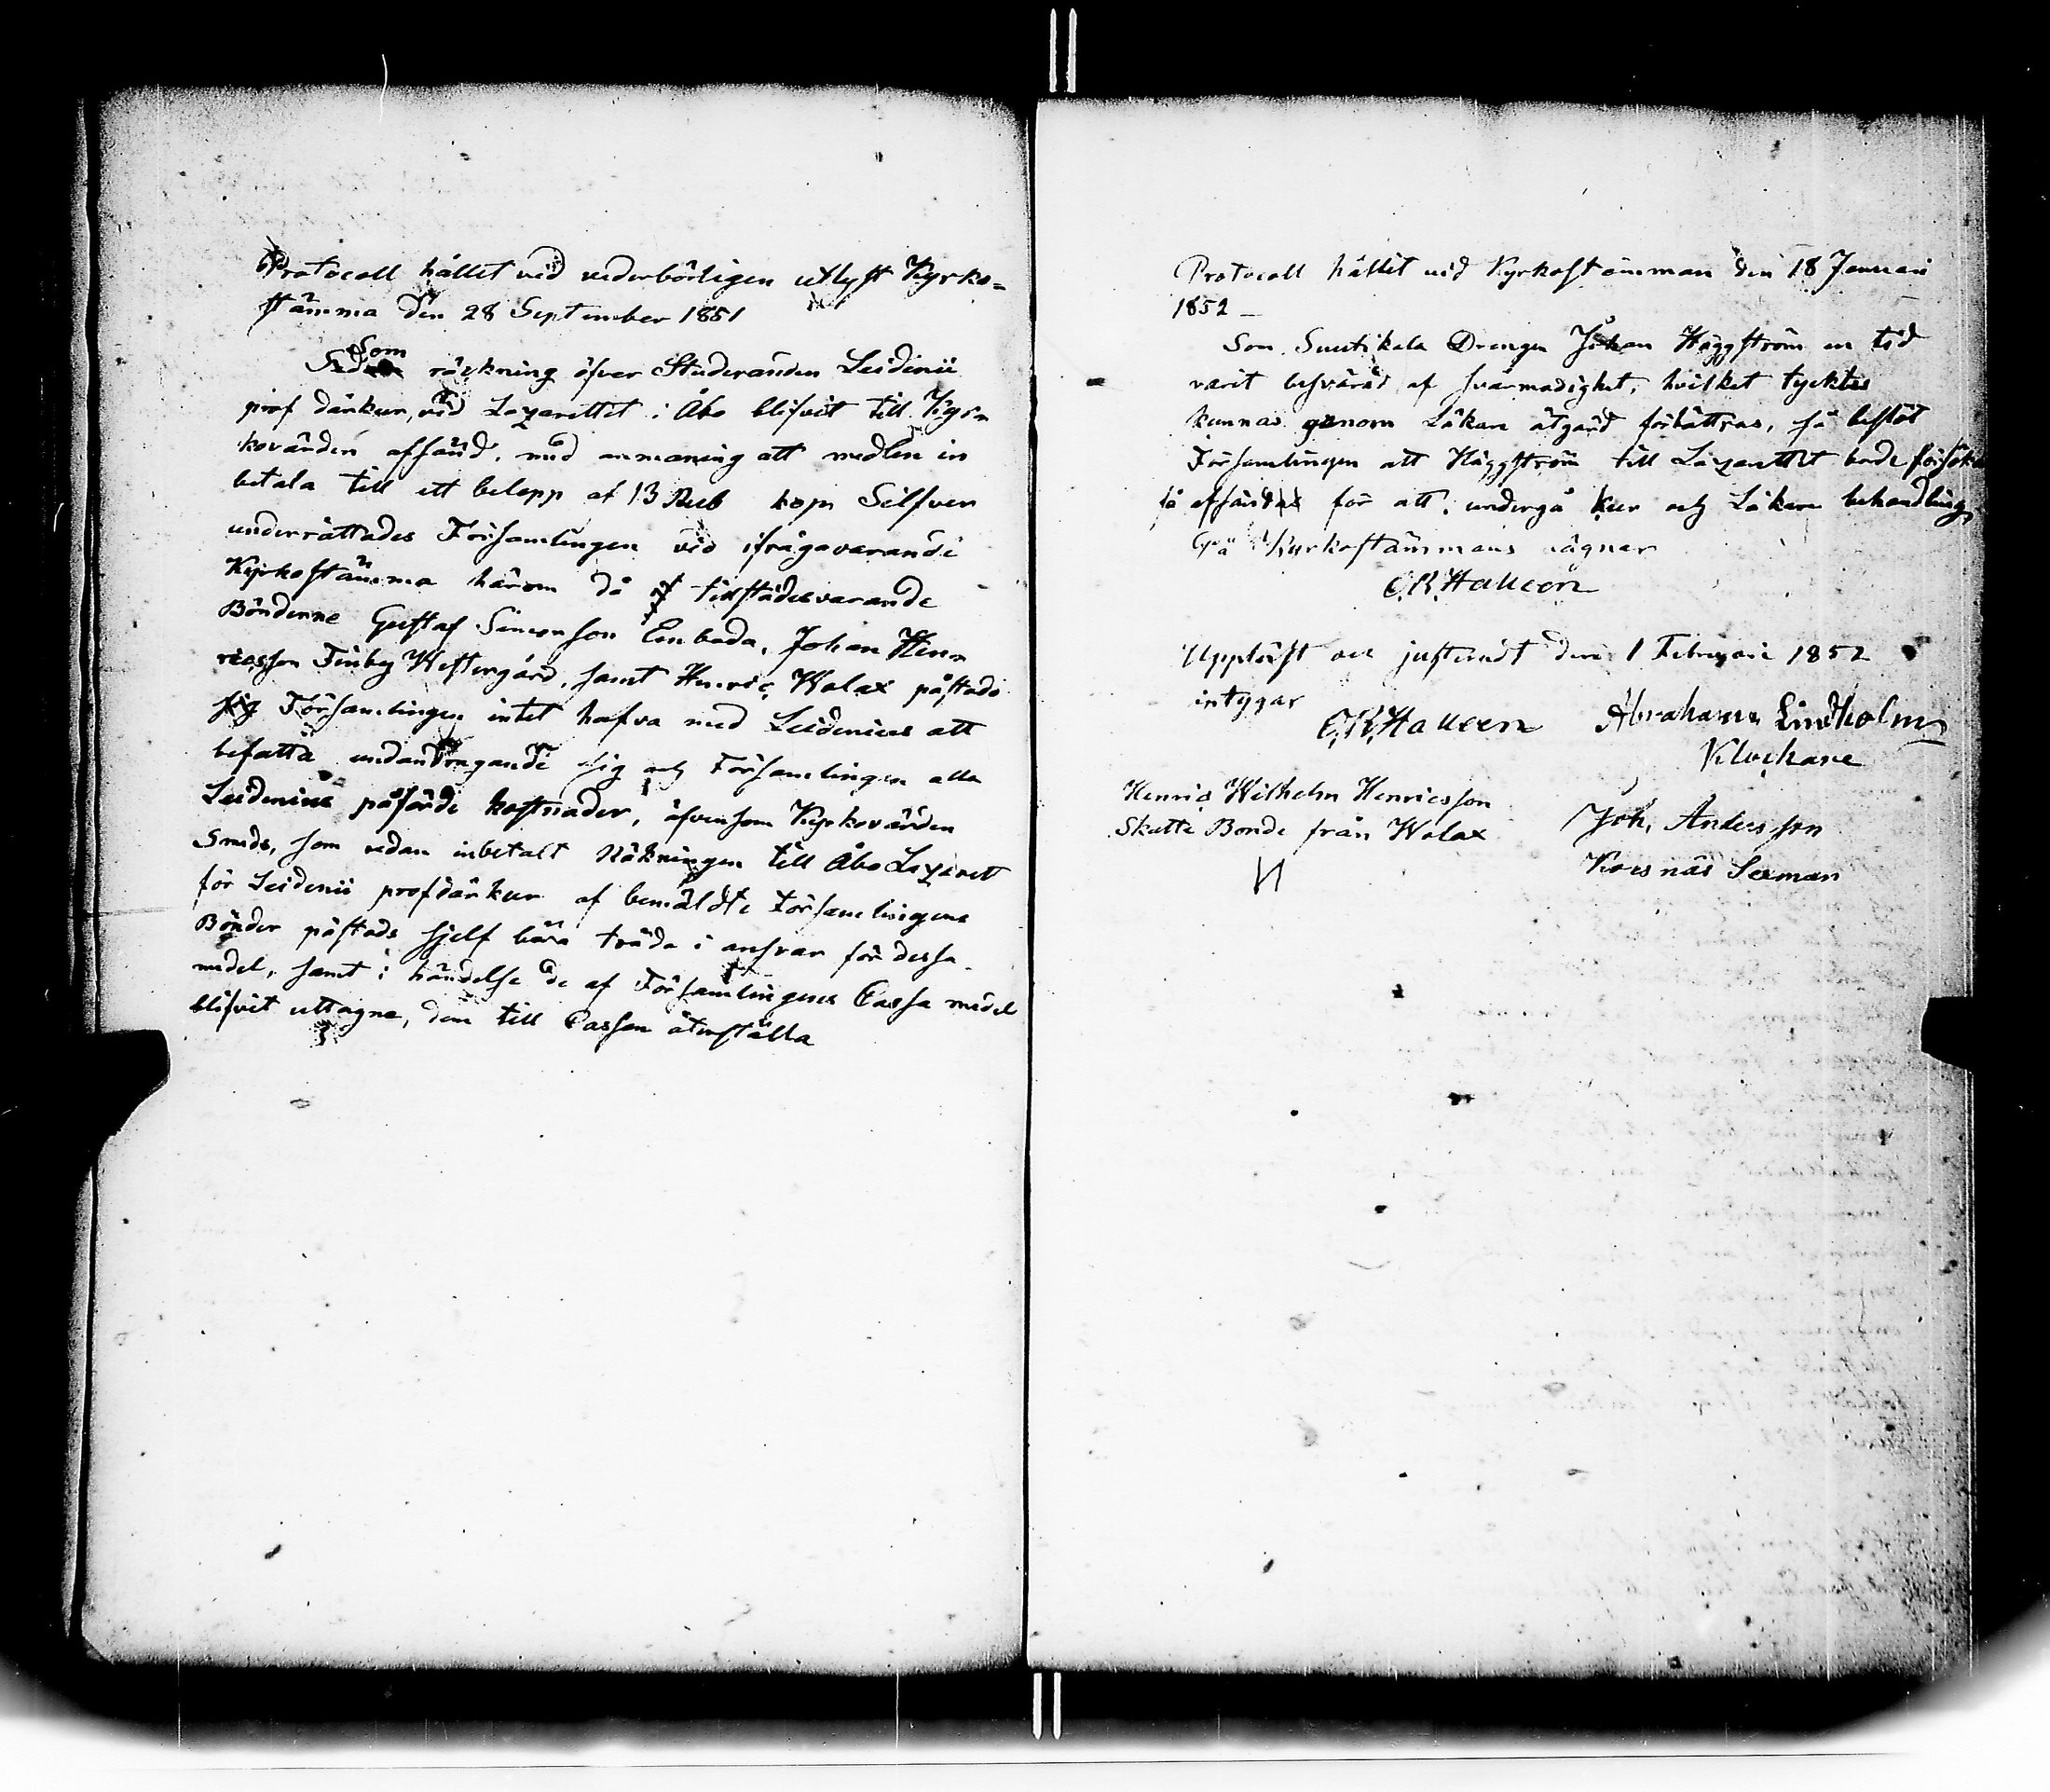 Protocoll hållet vid vederbörligen utlyst Kyrko=
stämma den 28 September 1851
Som räkning öfver Studeranden Leidenii
prof därkur, vid Lazarettet i Åbo blifvit till Kyr=
kovärden afsänd, med anmaning att medlen in
betala till ett belopp af 13 Rub kop Silfver
underrättades Församlingen vid ifrågavarande
Kyrkostämma härom då tillstädesvarande
Bönderne Gustaf Simonson Emboda, Johan Hen=
ricsson Finby Westergård, samt Henric Walax påstodo
sig Församlingen intet hafva med Leidenius att
befatta undandragande sig och Församlingen alla
Leidenius påförde kostnader, äfvensom Kyrkovärden
Smeds, som redan inbetalt Räkningen till Åbo Lazarett
för Leidenii profdärkur af bemäldte Församlingens
Bönder påstods sjelf böra träda i ansvar för dessa
medel, samt i händelse de af Församlingens Cassa medel
blifvit uttagne, dem till Cassan återställa
Protocoll hållit vid Kyrkostämman den 18 Januari
1852
Som Drengen Johan Häggström en tid
varit besvärad af svårmodighet, hvilket tycktes
kunnas genom Läkare åtgärd förbättras, så beslöt
Församlingen att Häggström till Lazarettet borde försök
få afsändas för att undergå kur och Läkare behandling
På Kyrkostämmans vägnar
C.R. Halleen
Uppläst och justeradt den 1 Februari 1852
intygar
C.R. Halleen Abraham Lindholm
Klockare
Henric Wilhelm Henricsson
Skatte Bonde från Walax
Joh. Andersson
Korsnäs Sexman